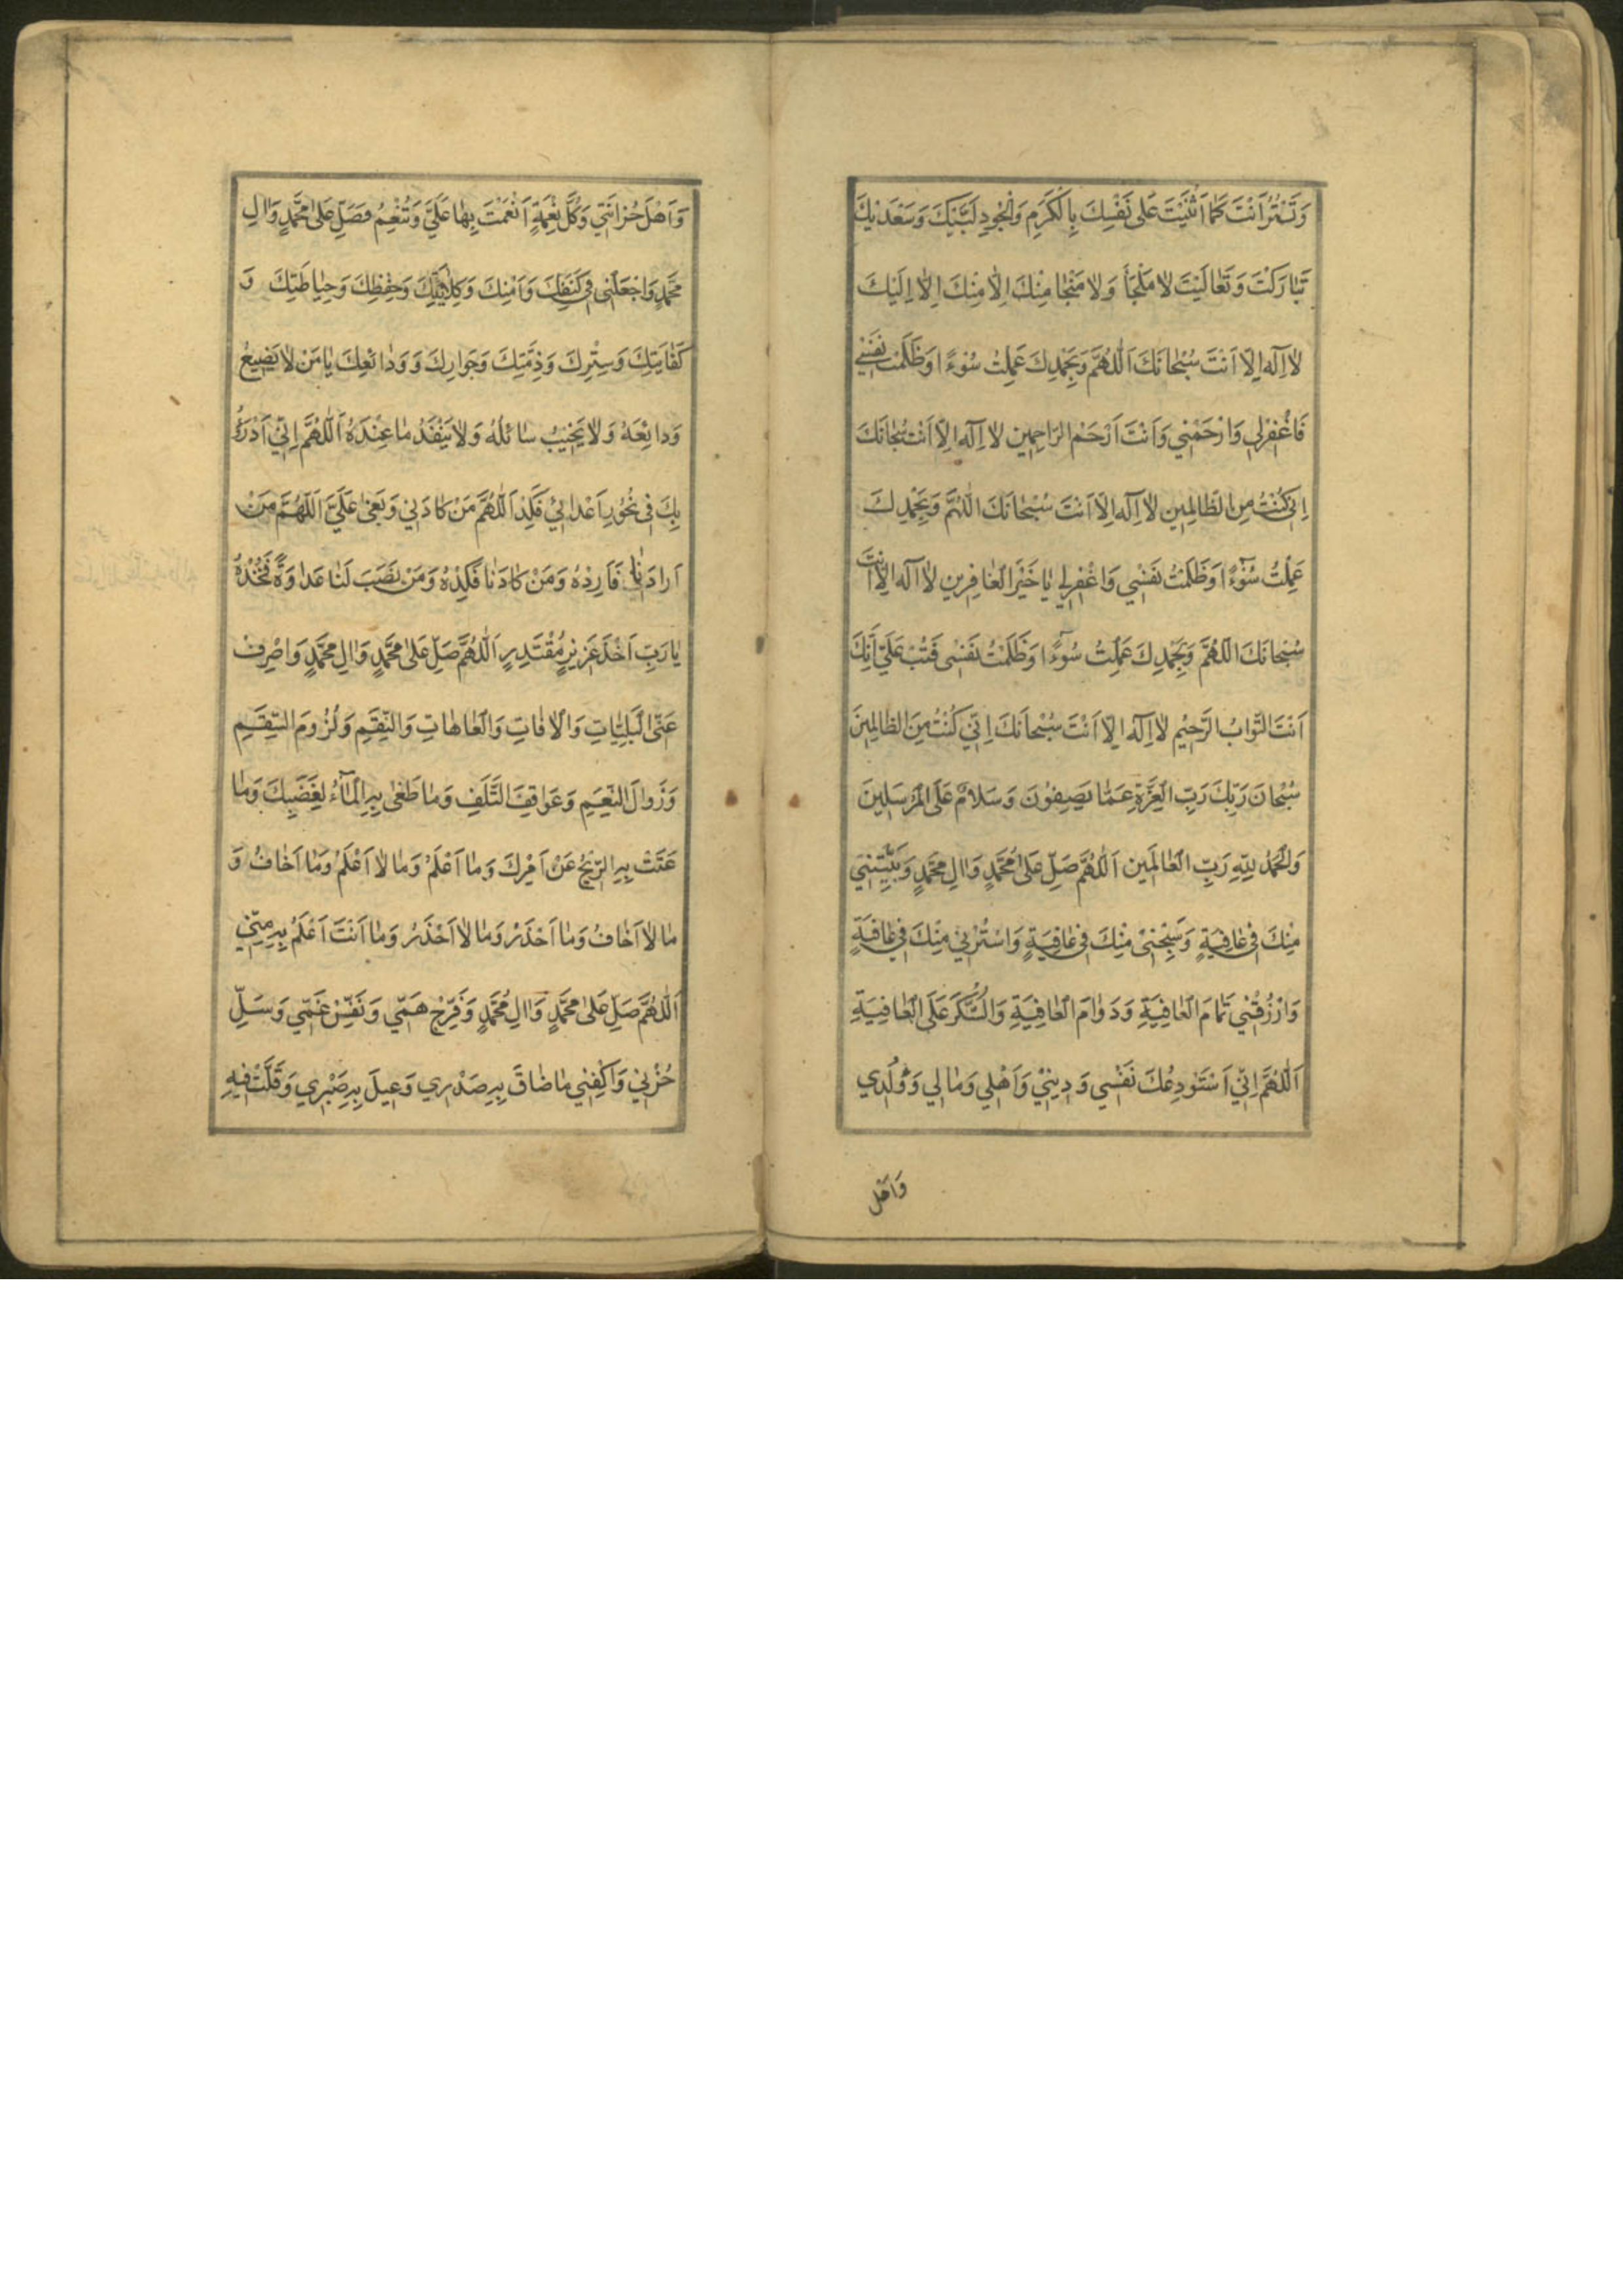 وَتَسْتُرُ اَنْتَ كَمٰا اَثْنَيْتَ عَلٰى نَفْسِكَ بِالْكَرَمِ وَالْجُودِ لَبَّيْكَ وَسَعْدَيْكَ
تَبٰارَكْتَ وَتَعٰالَيْتَ لاٰ مَلْجَأَ وَلاٰ مَنْجٰا مِنْكَ اِلاّٰ مِنْكَ اِلاّٰ اِلَيْكَ
لاٰ اِلٓهَ اِلاّٰ اَنْتَ سُبْحٰانَكَ اَللّٰهُمَّ وَبِحَمْدِكَ عَمِلْتُ سُوءًا وَظَلَمْتُ نَفْسٖي
فَاغْفِرْلٖي وَارْحَمْنٖي وَاَنْتَ اَرْحَمُ الرّٰاحِمٖين لاٰ اِلٓهَ اِلاّٰ اَنْتَ سُبْحٰانَكَ
اِنّٖي كُنْتُ مِنَ الظّٰالِمٖين لاٰ اِلٓهَ اِلاّٰ اَنْتَ سُبْحٰانَكَ اللّٰهُمَّ وَبِحَمْدِكَ
عَمِلْتُ سُوٓءًا وَظَلَمْتُ نَفْسٖي وَاغْفِرْلٖي يٰا خَيْرَ الْغٰافِرٖين لاٰ اِلٓهَ اِلاّٰ اَنْتَ
سُبْحٰانَكَ اللّٰهُمَّ وَبِحَمْدِكَ عَمِلْتُ سُوٓءًا وَظَلَمْتُ نَفْسٖي فَتُبْ عَلَيَّ اِنَّكَ
اَنْتَ التَّوّٰابُ الرَّحٖيمُ لاٰ اِلٓهَ اِلاّٰ اَنْتَ سُبْحٰانَكَ اِنّٖي كُنْتُ مِنَ الظّٰالِمٖينَ
سُبْحٰانَ رَبِّكَ رَبِّ الْعِزَّةِ عَمّٰا يَصِفُونَ وَسَلاٰمٌ عَلَى الْمُرْسَلٖينَ
وَالْحَمْدُ لِلّٰهِ رَبِّ الْعٰالَمٖين اَللّٰهُمَّ صَلِّ عَلٰى مُحَمَّدٍ وَاٰلِ مُحَمَّدٍ وَبَيِّتْنٖي
مِنْكَ فٖي عٰافِيَةٍ وَصَبِّحْنٖي مِنْكَ فٖي عٰافِيَةٍ وَاسْتُرْنٖي مِنْكَ فٖي عٰافِيَةٍ
وَارْزُقْنٖي تَمٰامَ الْعٰافِيَةِ وَدَوٰامَ الْعٰافِيَةِ وَالشُّكْرَ عَلَى الْعٰافِيَةِ
اَللّٰهُمَّ اِنّٖي اَسْتَوْدِعُكَ نَفْسٖي وَدٖينٖي وَاَهْلٖي وَمٰالٖي وَوُلْدٖي
وَاَهْل
وَاَهْلَ حُزٰانَتٖي وَكُلَّ نِعْمَةٍ اَنْعَمْتَ بِهٰا عَلَيَّ وَتُنْعِمُ فَصَلِّ عَلٰى مُحَمَّدٍ وَاٰلِ
مُحَمَّدٍ وَاجْعَلْنٖي فٖي كَنَفِكَ وَاَمْنِكَ وَكِلاٰئَتِكَ وَحِفْظِكَ وَحِيٰاطَتِكَ وَ
كَفٰايَتِكَ وَسِتْرِكَ وَذِمَّتِكَ وَجَوٰارِكَ وَوَدٰائِعِكَ يٰا مَنْ لاٰ يَضٖيعُ
وَدٰائِعَهُ وَلاٰ يَخٖيبُ سٰائِلُهُ وَلاٰ يَنْفَدُ مٰا عِنْدَهُ اَللّٰهُمَّ اِنّٖي اَدْرَؤُ
بِكَ فٖي نُحُورِ اَعْدٰائٖي فَكِدْ اَللّٰهُمَّ مَنْ كٰادَنٖي وَبَغٰى عَلَيَّ اَللّٰهُمَّ مَنْ
اَرٰادَنٰا فَاَرِدْهُ وَمَنْ كٰادَنٰا فَكِدْهُ وَمَنْ نَصَبَ لَنٰا عَدٰاوَةً فَخُذْهُ
يٰا رَبِّ اَخْذَ عَزٖيزٍ مُقْتَدِرٍ اَللّٰهُمَّ صَلِّ عَلٰى مُحَمَّدٍ وَاٰلِ مُحَمَّدٍ وَاصْرِفْ
عَنّٖي الْبَلِيّٰاتِ وَالْاٰفٰاتِ وَالْعٰاهٰاتِ وَالنِّقَمِ وَلُزُومَ السِّقَمِ
وَزَوٰالَ النِّعَمِ وَعَوٰاقِبَ التَّلَفِ وَمٰا طَغٰى بِهِ الْمٰآءُ لِغَضَبِكَ وَمٰا
عَتَتْ بِهِ الرّٖيحُ عَنْ اَمْرِكَ وَمٰا اَعْلَمُ وَمٰا لاٰ اَعْلَمُ وَمٰا اَخٰافُ وَ
مٰا لاٰ اَخٰافُ وَمٰا اَحْذَرُ وَمٰا لاٰ اَحْذَرُ وَمٰا اَنْتَ اَعْلَمُ بِهِ مِنّٖي
اَللّٰهُمَّ صَلِّ عَلٰى مُحَمَّدٍ وَاٰلِ مُحَمَّدٍ وَفَرِّجْ هَمّٖي وَنَفِّسْ غَمّٖي وَسَلِّ
حُزْنٖي وَاكْفِنٖي مٰا ضٰاقَ بِهِ صَدْرٖي وَعٖيلَ بِهِ صَبْرٖي وَقَلَّتْ فٖيهِ